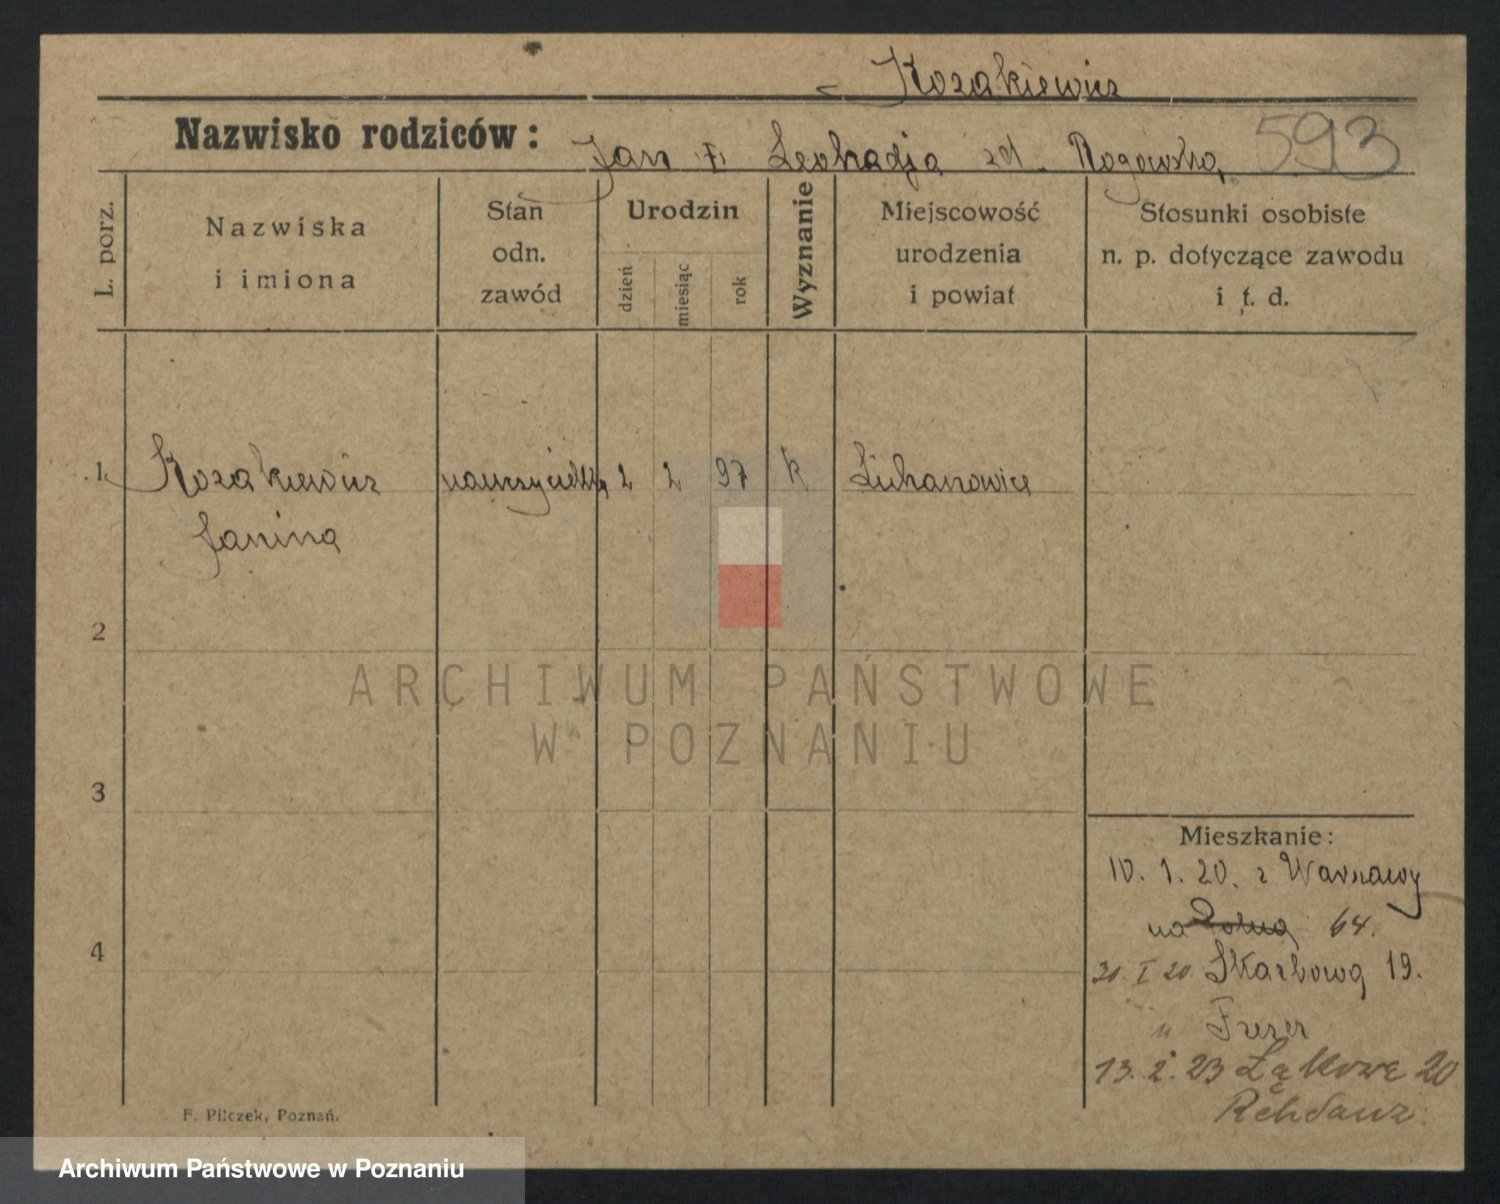 Kozakiewicz
Nazwisko rodziców: Jan i Leokadja zd. Rogowska 593
L. porz.
Nazwiska
i imiona
Stan
odn.
zawód
Urodzin
dzień
miesiąc
rok
Wyznanie
Miejscowość
urodzenia
i powiat
Stosunki osobiste
n. p. dotyczące zawodu
i t. d.
1 Kozakiewicz nauczycielka 2 2 97 k
Janina
2
3
4
ARCHIWUM PAŃSTWOWE
W POZNANIU
Mieszkanie:
10. 1. 20. z Warszawy
na 64.
I 20. Skarbowa 19.
u
13. 2. 23 Łąkowa 20
F. Pilczek, Poznań.
Archiwum Państwowe w Poznaniu